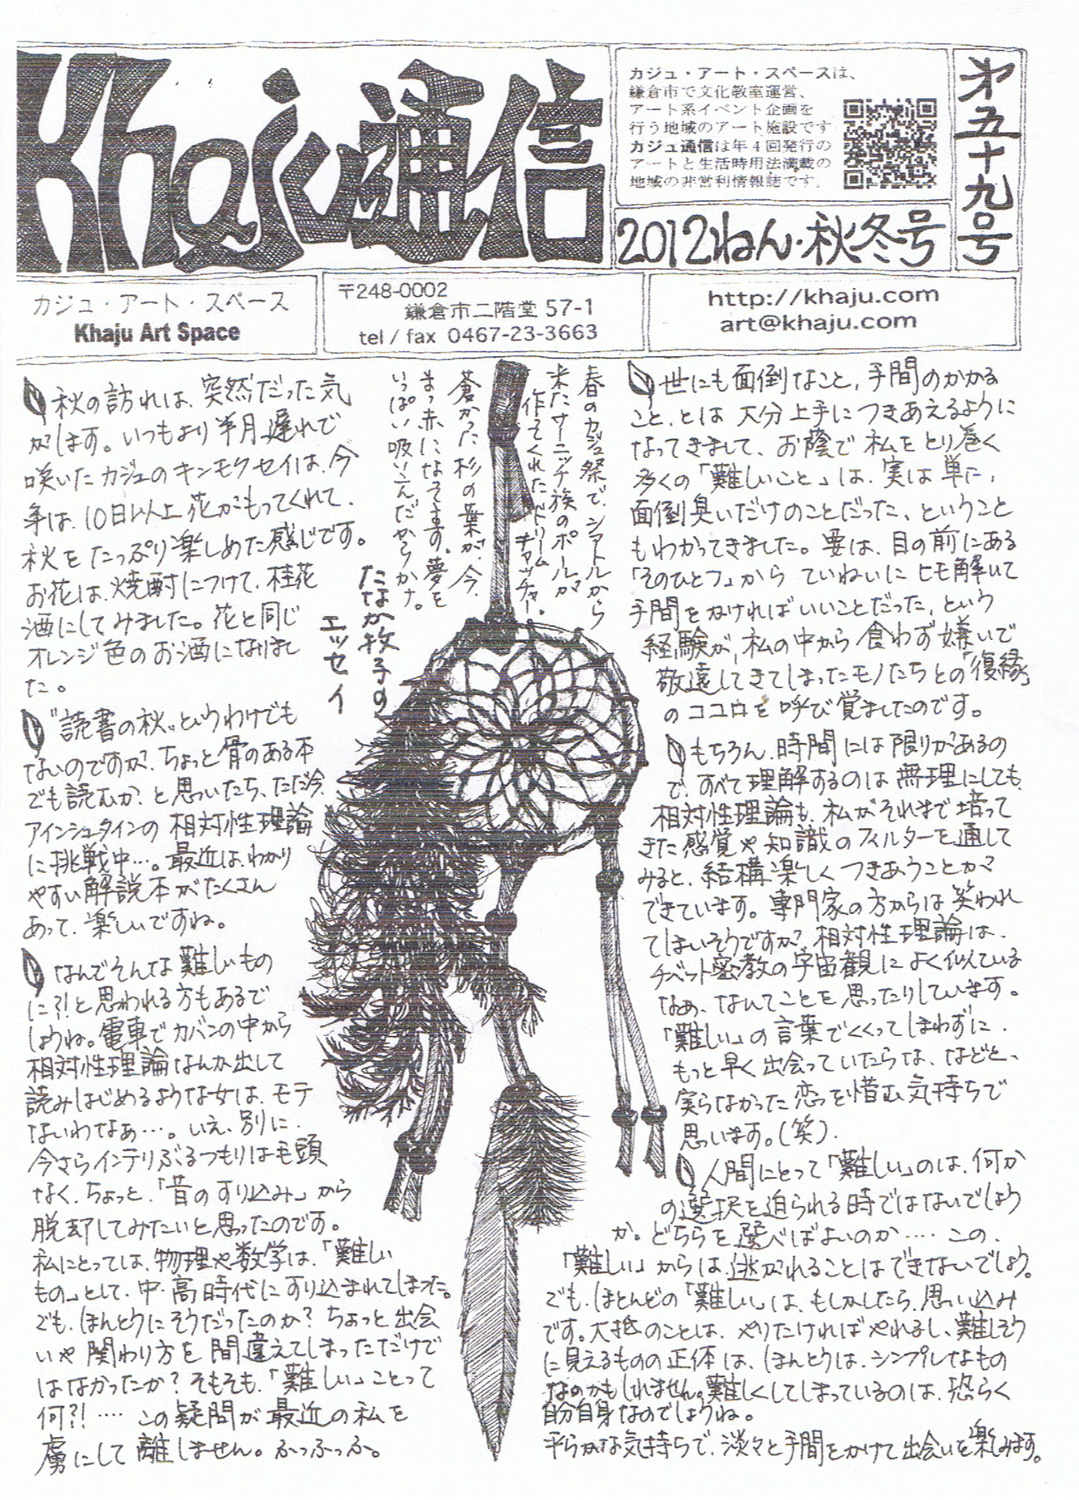 Khaju通信
カジュ・アート・スペースは、
鎌倉市で文化教室運営、
アート系イベント企画を
行う地域のアート施設です
カジュ通信は年4回発行の
アートと生活時用法満載の
地域の非営利情報誌です。
第五十九号
2012ねん・秋冬号
カジュ・アート・スペース
Khaju Art Space
〒248-0002
鎌倉市二階堂 57-1
tel / fax 0467-23-3663
http://khaju.com
art@khaju.com
秋の訪れは、突然だった気
がします。いつもより半月遅れで
咲いたカジュのキンモクセイは、今
年は、10日以上花がもってくれて、
秋をたっぷり楽しめた感じです。
お花は、焼酎につけて、桂花
酒にしてみました。花と同じ
オレンジ色のお酒になりまし
た。
"読書の秋"というわけでも
ないのですが、ちょっと骨のある本
でも読むか、と思いたち、ただ今、
アインシュタインの相対性理論
に挑戦中…。最近は、わかり
やすい解説本がたくさん
あって、楽しいですね。
なんでそんな難しいもの
に?!と思われる方もあるで
しょうね。電車でカバンの中から
相対性理論なんか出して
読みはじめるような女は、モテ
ないわなぁ…。いえ、別に、
今さらインテリぶるつもりは毛頭
なく、ちょっと、「昔のすり込み」から
脱却してみたいと思ったのです。
私にとっては、物理や数学は、「難しい
もの」として、中・高時代にすり込まれてしまった。
でも、ほんとうにそうだったのか?ちょっと出会
いや関わり方を間違えてしまっただけで
はなかったか?そもそも、「難しい」ことって
何?!‥‥この疑問が最近の私を
虜にして離しません。ふっふっふ。
春のカジュ祭で、シアトルから
来たサーニッチ族のポールが
作ってくれたドリーム
キャッチャー。
蒼かった杉の葉が、今、
まっ赤になってます。夢を
いっぱい吸いこんだからかナ。
たなか牧子の
エッセイ
世にも面倒なこと、手間のかかる
こと、とは大分上手につきあえるように
なってきまして、お蔭で私をとり巻く
多くの「難しいこと」は、実は単に、
面倒臭いだけのことだった、ということ
もわかってきました。要は、目の前にある
「そのひとつ」からていねいにヒモ解いて
手間をかければいいことだった、という
経験が、私の中から食わず嫌いで
敬遠してきてしまったモノたちとの「復縁」
のココロを呼び覚ましたのです。
もちろん、時間には限りがあるの
で、すべて理解するのは無理にしても、
相対性理論も、私がそれまで培って
きた感覚や知識のフィルターを通して
みると、結構楽しくつきあうことが
できています。専門家の方からは笑われ
てしまいそうですが、相対性理論は、
チベット密教の宇宙観によく似ている
なぁ、なんてことを思ったりしています。
「難しい」の言葉でくくってしまわずに、
もっと早く出会っていたらな、などと、
実らなかった恋を惜しむ気持ちで
思います。(笑)。
人間にとって「難しい」のは、何か
の選択を迫られる時ではないでしょう
か。どちらを選べばよいのか‥‥この、
「難しい」からは、逃がれることはできないでしょう。
でも、ほとんどの「難しい」は、もしかしたら、思い込み
です。大抵のことは、やりたければやれるし、難しそう
に見えるものの正体は、ほんとうは、シンプルなもの
なのかもしれません。難しくしてしまっているのは、恐らく
自分自身なのでしょうね。
平らかな気持ちで、淡々と手間をかけて出会いを楽しみます。